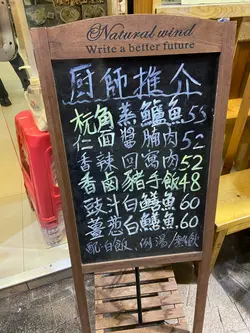 Natural wind
Write a better future
廚師推介
杬角蒸鱸魚55
仁面醬腩肉52
香辣回鍋肉52
香卤豬手飯48
豉汁白鱔魚60
薑葱白鱔魚60
配白飯、例湯/熱飲